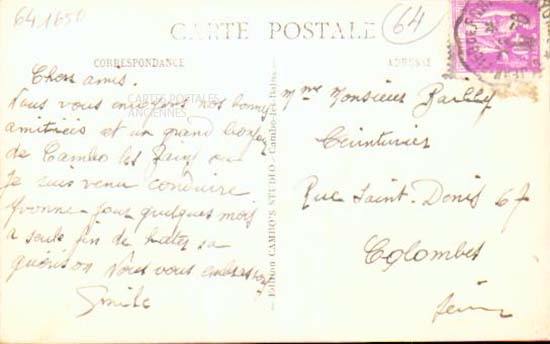 641650
CARTE POSTALE
64
CORRESPONDANCE
ADRESSE
Chers amis.
Nous vous envoyons nos bonnes
amitiées et un grand bonjour
de Cambo les Bains ou
Je suis venu conduire
Yvonne pour quelques mois
a seule fin de hater sa
guérison Nous vous embrassons
Emile
CARTES POSTALES
ANCIENNES
Edition CAMBO'S STUDIO - Cambo-les-Bains
Mme Monsieur Bailly
Ceinturier
Rue Saint-Denis 67
Colombes
Seine